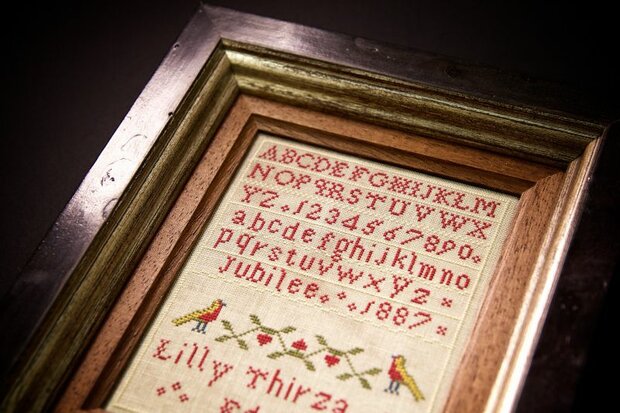 ABCDEFGHIJKLM
NOPQRSTUVWX
YZ.1234567890.
abcdefghijklmno
pqrstuvwxyz
Jubilee..1887
Lilly Thirza